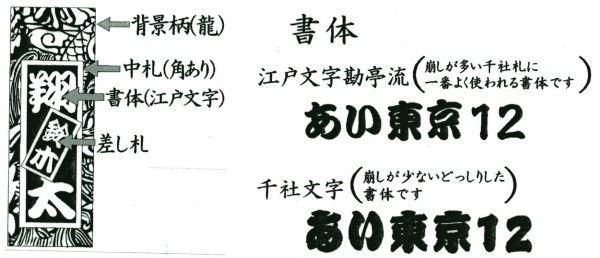 背景柄(龍)
中札(角あり)
書体(江戸文字)
差し札
翔
鈴木
太
書体
江戸文字勘亭流(崩しが多い千社札に
一番よく使われる書体です)
あい東京12
千社文字(崩しが少ないどっしりした
書体です)
あい東京12